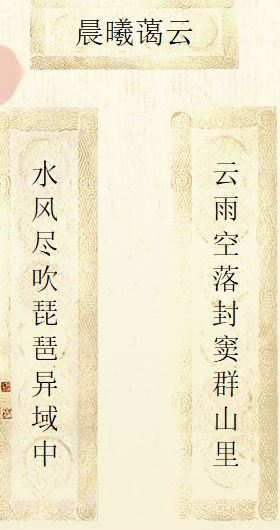 晨曦蔼云
云雨空落封窦群山里
水风尽吹琵琶异域中